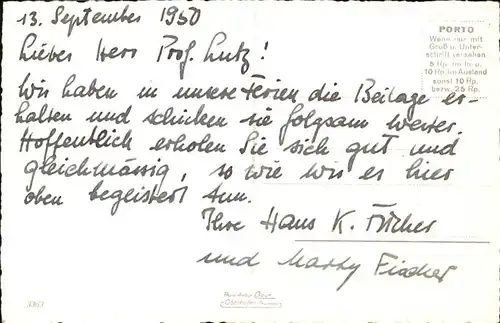 13. September 1950
Lieber Herr Prof. Lutz!
Wir haben in unsere Ferien die Beilage er-
halten und schicken sie folgsam weiter.
Hoffentlich erholen Sie sich gut und
gleichmässig, so wie wir es hier
oben begeistert tun.
Ihre Hans K. Fischer
und Marty Fischer
PORTO
Wenn nur mit
Gruß u. Unter-
schrift versehen
5 Rp. im In- u.
10 Rp. im Ausland
sonst 10 Rp.
bezw. 25 Rp.